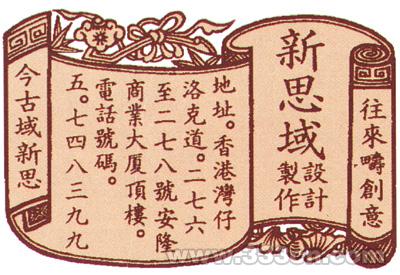 往來疇創意
新思域
設計
製作
地址。香港灣仔
洛克道。二七六
至二七八號安隆
商業大厦頂樓。
電話號碼。
五。七四八三九九
今古域新思
www.333cn.com